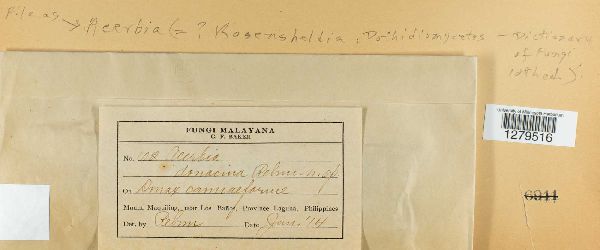 File as → Acerbia (= ? Rosenscheldia, Dothidiomycetes – Dictionary
of Fungi
10th ed.).
FUNGI MALAYANA
C. F. BAKER
No. Acerbia
donacina Rehm n. sp.
On Donax cannaeformis
Mount Maquiling, near Los Baños, Province Laguna, Philippines
Det. by Rehm Date Jan. '14
University of Minnesota Herbarium
1279516
6911